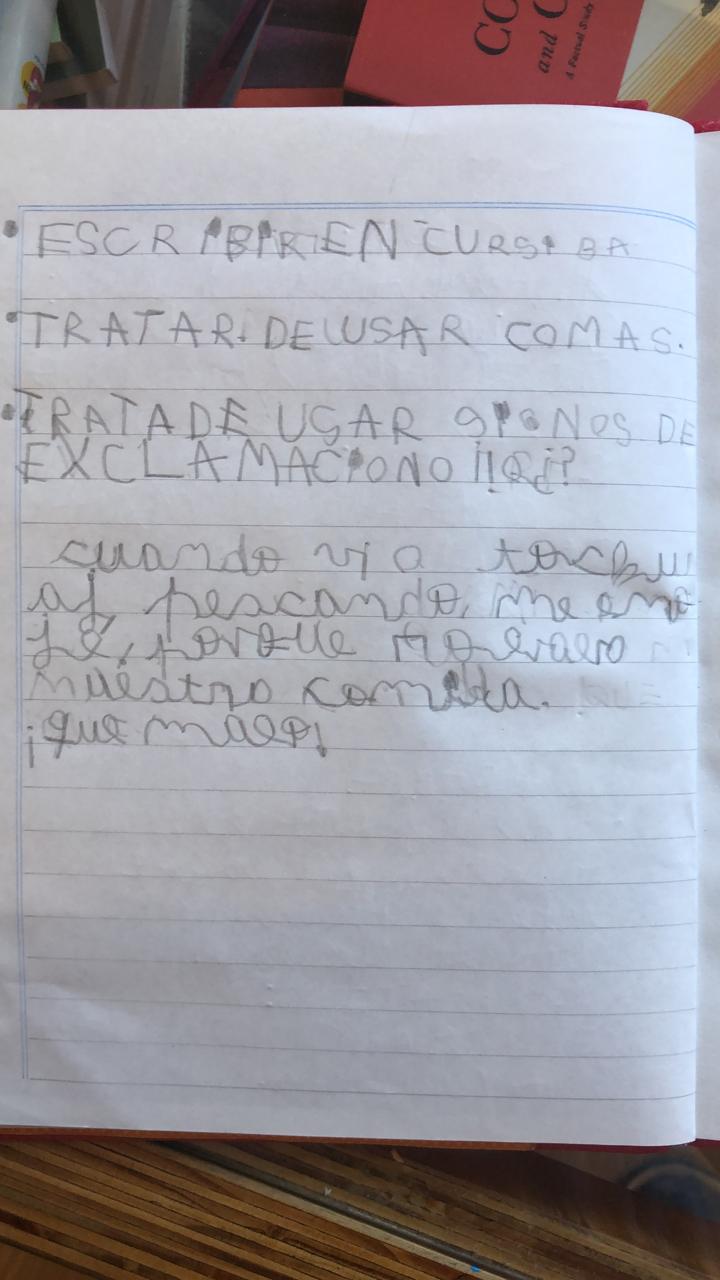 CO
and C
A Factual Study
• ESCRIBIR EN CURSIBA
• TRATAR. DE USAR COMAS.
• TRATA DE USAR SIGNOS DE
EXCLAMACIONO ¡!O¿?
cuando vi a
pescando, me eno
jé, porque
nuestra comida.
¡que malo!